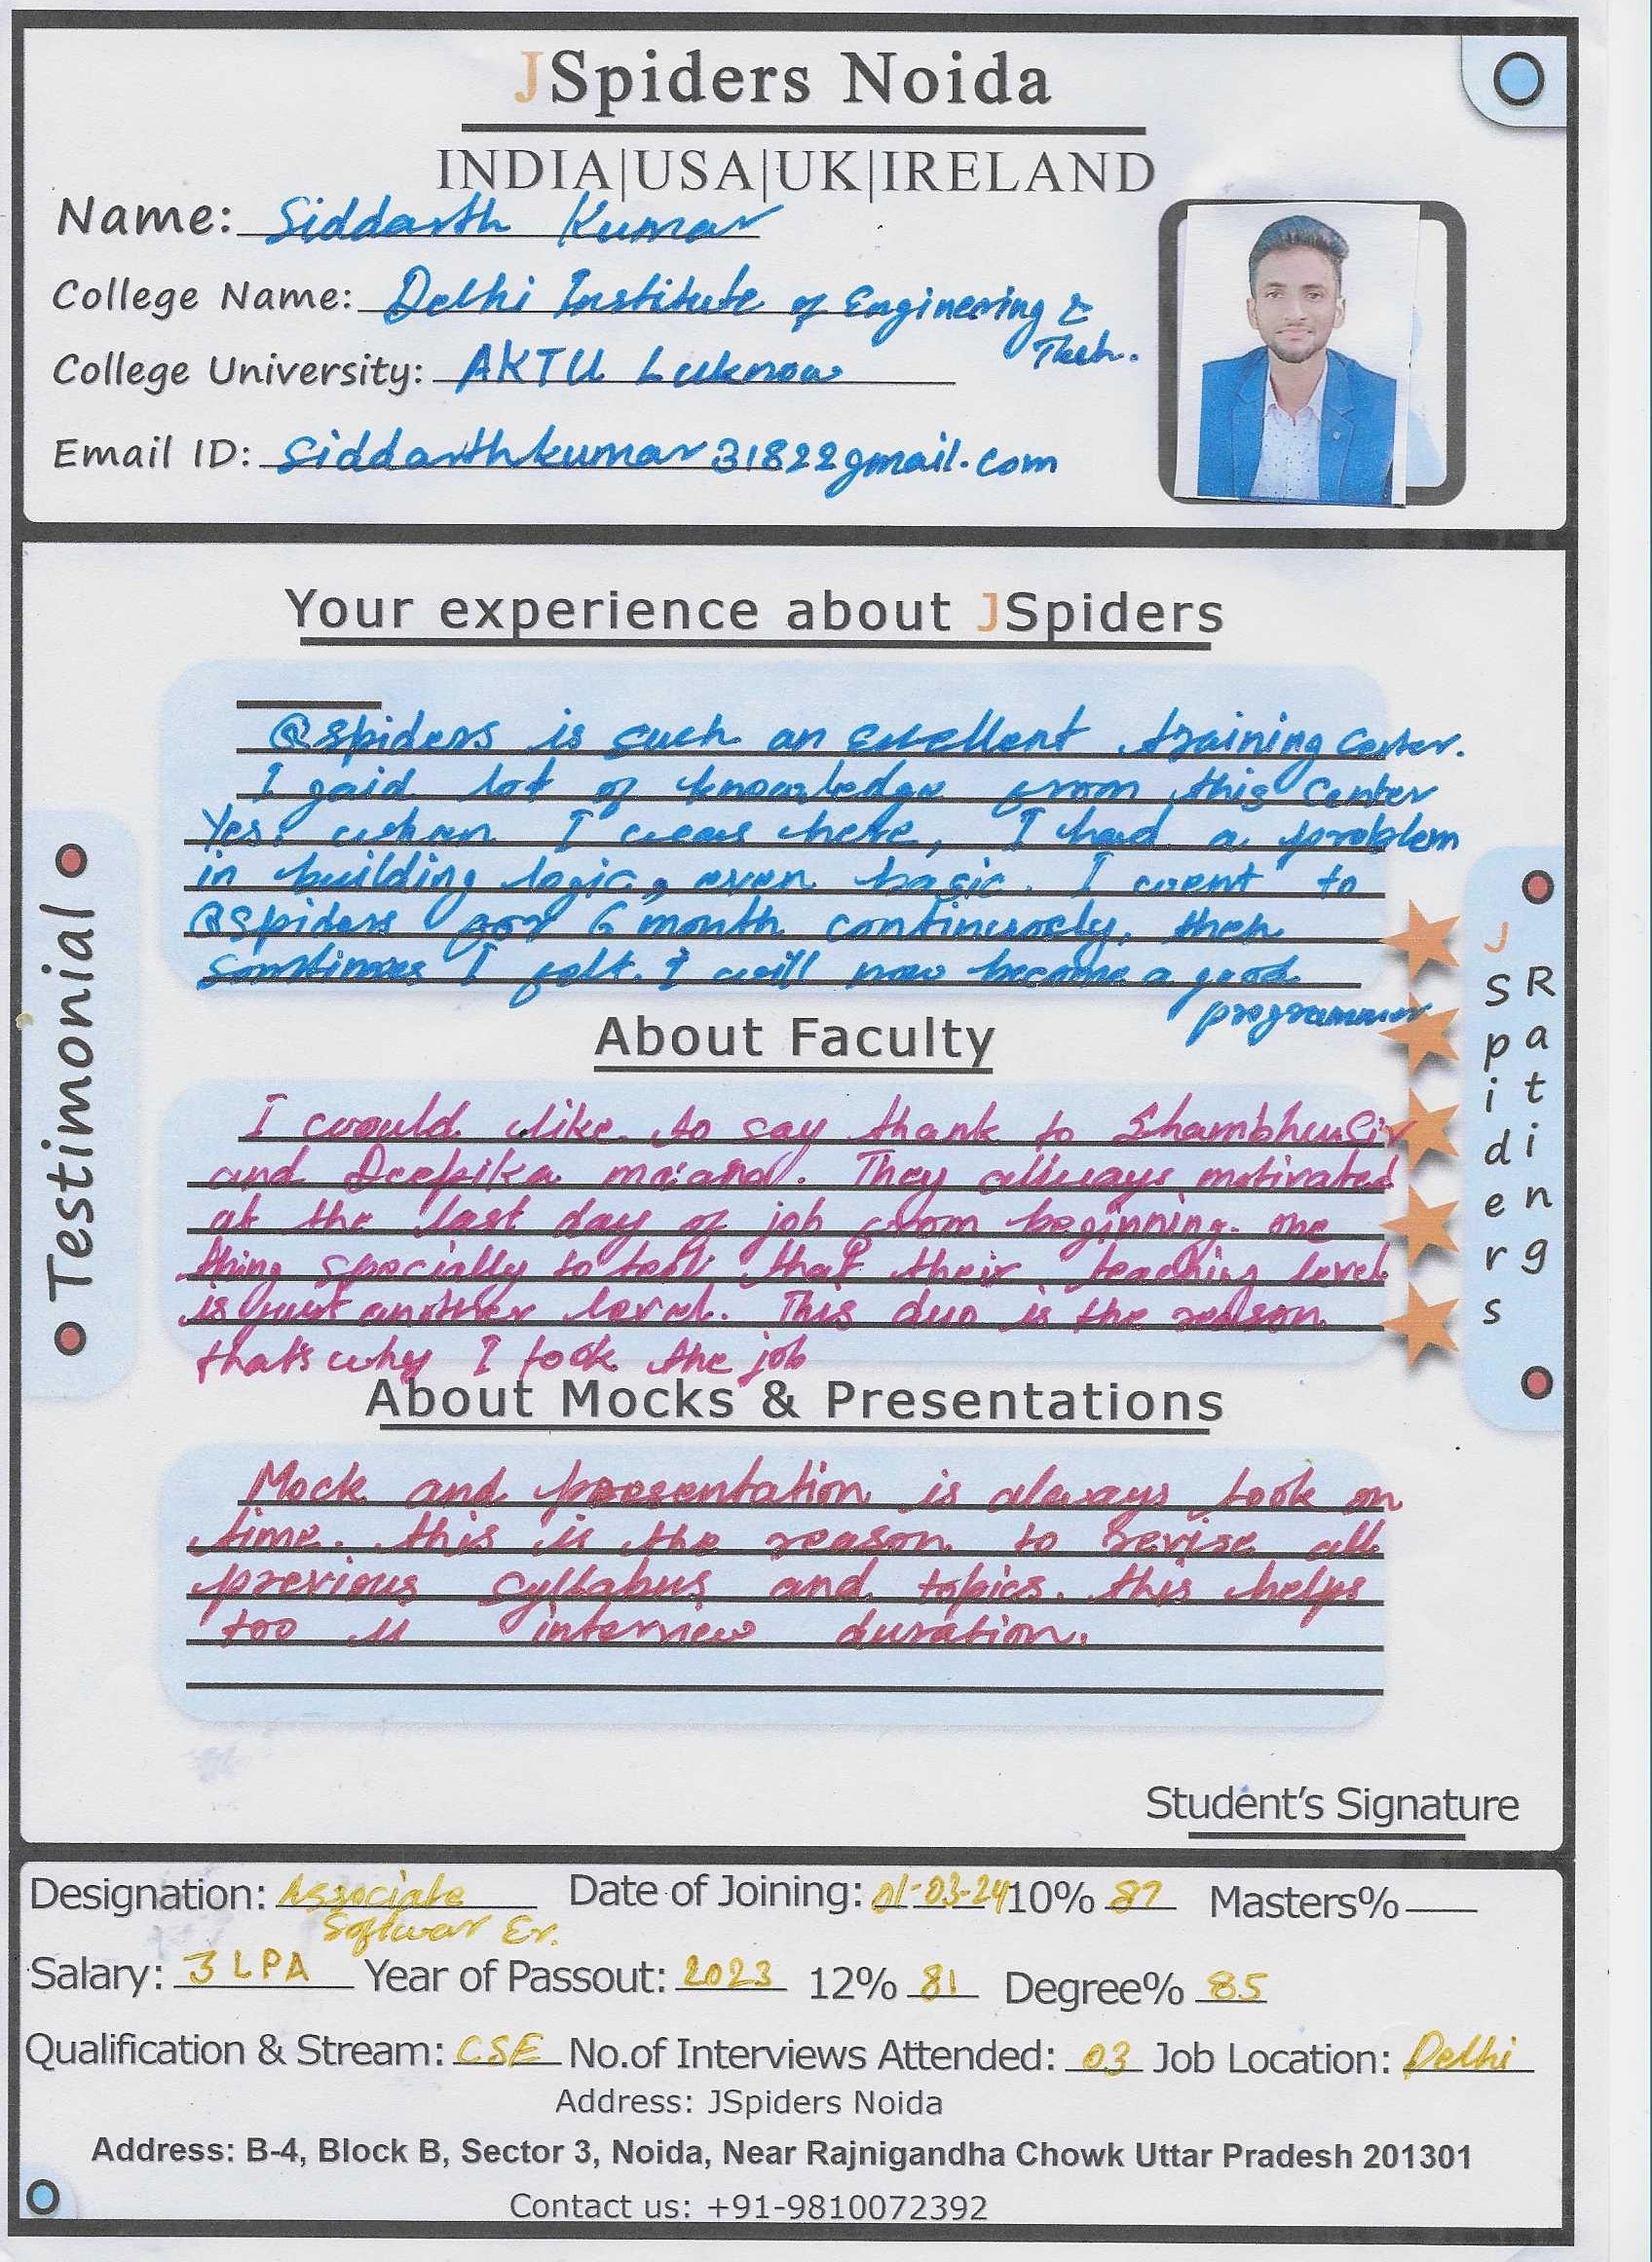 JSpiders Noida
INDIA|USA|UK|IRELAND
Name: Siddarth Kumar
College Name: Delhi Institute of Engineering &
Tech.
College University: AKTU Luknow
Email ID: Siddarthkumar31822gmail.com
Your experience about JSpiders
@spiders is such an excellent training Center.
I gaid lot of knowledge from this Center
Yes. when I was here, I had a problem
in building logic, even basic. I went to
@spiders for 6 month continuosly, then
Somtimes I felt. I will now become a good
programmer
About Faculty
I would like to say thank to Shambhu Sir
and Deepika . They always motivated
at the last day of job from beginning. one
thing specially to tell that their teaching level
is just another level. This duo is the reason
that's why I took the job
About Mocks & Presentations
Mock and presentation is always took on
time. this is the reason to revise all
previous syllabus and topics. this helps
too interview duration.
Testimonial
JSpiders
Rating
Student's Signature
Designation: Associate Date of Joining: 01-03-24 10% 87 Masters%
Softwar Er.
Salary: 3 LPA Year of Passout: 2023 12% 81 Degree% 85
Qualification & Stream: CSE No.of Interviews Attended: 03 Job Location: Delhi
Address: JSpiders Noida
Address: B-4, Block B, Sector 3, Noida, Near Rajnigandha Chowk Uttar Pradesh 201301
Contact us: +91-9810072392